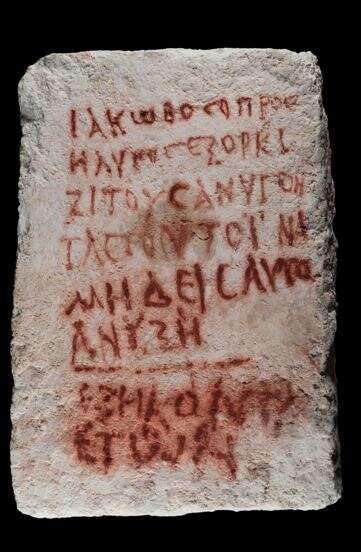 ΙΑΚΩΒΟCΟΠΡΟC
ΗΛΥΤΟCΕΞΟΡΚΙ
ΖΙΤΟΥCΑΝΥΓΟΝ
ΤΑCΤΟΥΤΟΙΝΑ
ΜΗΔΕΙCΑΥΤΟ
ΑΝΥΞΗ
ΕΤΩΝ